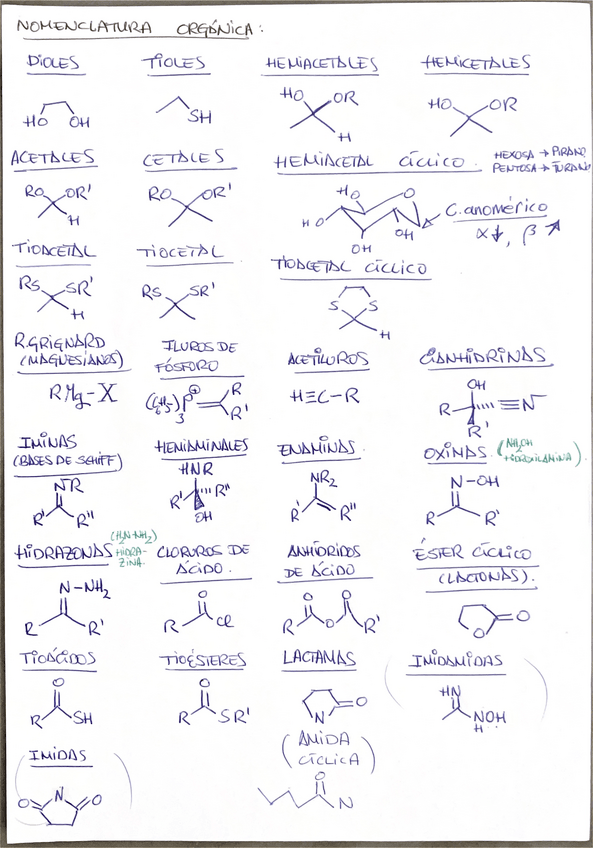 NOMENCLATURA ORGÁNICA:
DIOLES TIOLES HEMIACETALES HEMICETALES
HO OH SH HO OR H HO OR
ACETALES CETALES HEMIACETAL CÍCLICO. HEXOSA → PIRANO
PENTOSA → FURANO
RO OR' H RO OR' HO O HO OH OH C. anomérico
α↓, β↗
TIOACETAL TIOCETAL TIOACETAL CÍCLICO
RS SR' H RS SR' S S H
R. GRIGNARD (MAGNESIANOS) ILUROS DE FÓSFORO ACETILUROS CIANHIDRINAS
RMg-X (C6H5)3 P⊕ R R' H≡C-R OH R ≡N R'
IMINAS (BASES DE SCHIFF) HEMIAMINALES ENAMINAS OXIMAS (NH2OH HIDROXILAMINA).
NR R' R" HNR R' R" OH NR2 R' R" N-OH R R'
HIDRAZONAS (H2N-NH2) HIDRA-ZINA. CLORUROS DE ÁCIDO. ANHÍDRIDOS DE ÁCIDO ÉSTER CÍCLICO (LACTONAS).
N-NH2 R R' O R Cl O O R O R' O O
TIOÁCIDOS TIOÉSTERES LACTAMAS IMIDAMIDAS
O R SH O R SR' N O HN NOH H
IMIDAS (AMIDA CÍCLICA)
O N O O N